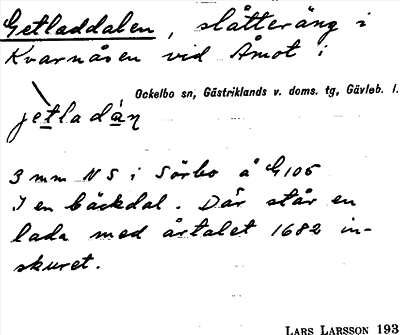 Getladdalen, slåtteräng i
Kvarnåsen vid Åmot i
Ockelbo sn, Gästriklands v. doms. tg, Gävleb. l.
jetladán
3 mm NS i Sörbo å G 105
I en bäckdal. Där står en
lada med årtalet 1682 in-
skuret.
LARS LARSSON 193